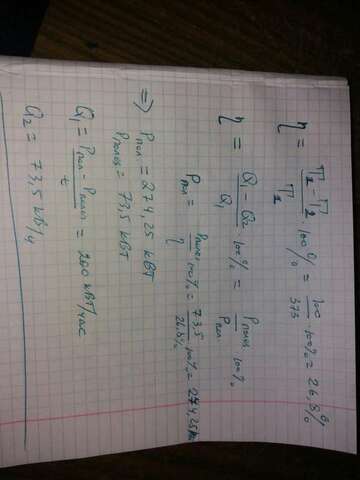 η = T₁ - T₂ / T₁ · 100% = 100 / 373 · 100% = 26,8%
η = Q₁ - Q₂ / Q₁ · 100% = Pполез / Pпол · 100%
Pпол = Pполез / η · 100% = 73,5 / 26.8% · 100% = 274,25
=> Pпол = 274,25 кВт
Pполез = 73,5 кВт
Q₁ = Pпол - Pполез / t = 200 кВт/час
Q₂ = 73,5 кВ/ч